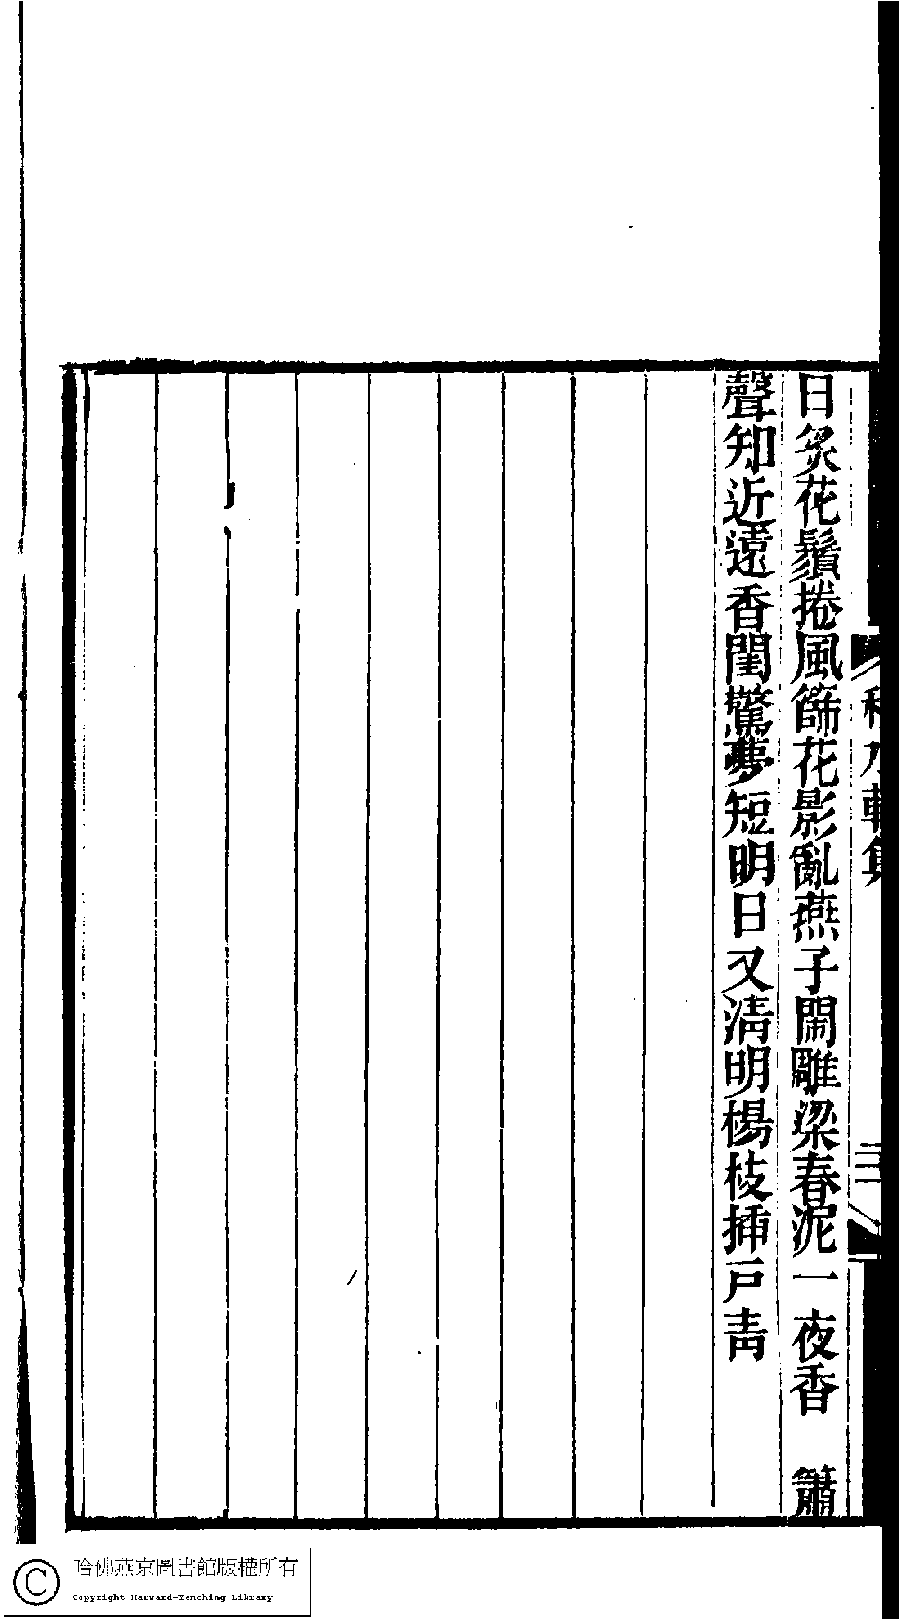 日炙花鬚捲風篩花影亂燕子閙雕梁春泥一夜香　簫
聲知近遠香閨驚夢短明日又淸明楊枝揷戸靑
三
哈佛燕京圖書館版權所有
Copyright Harvard-Yenching Library